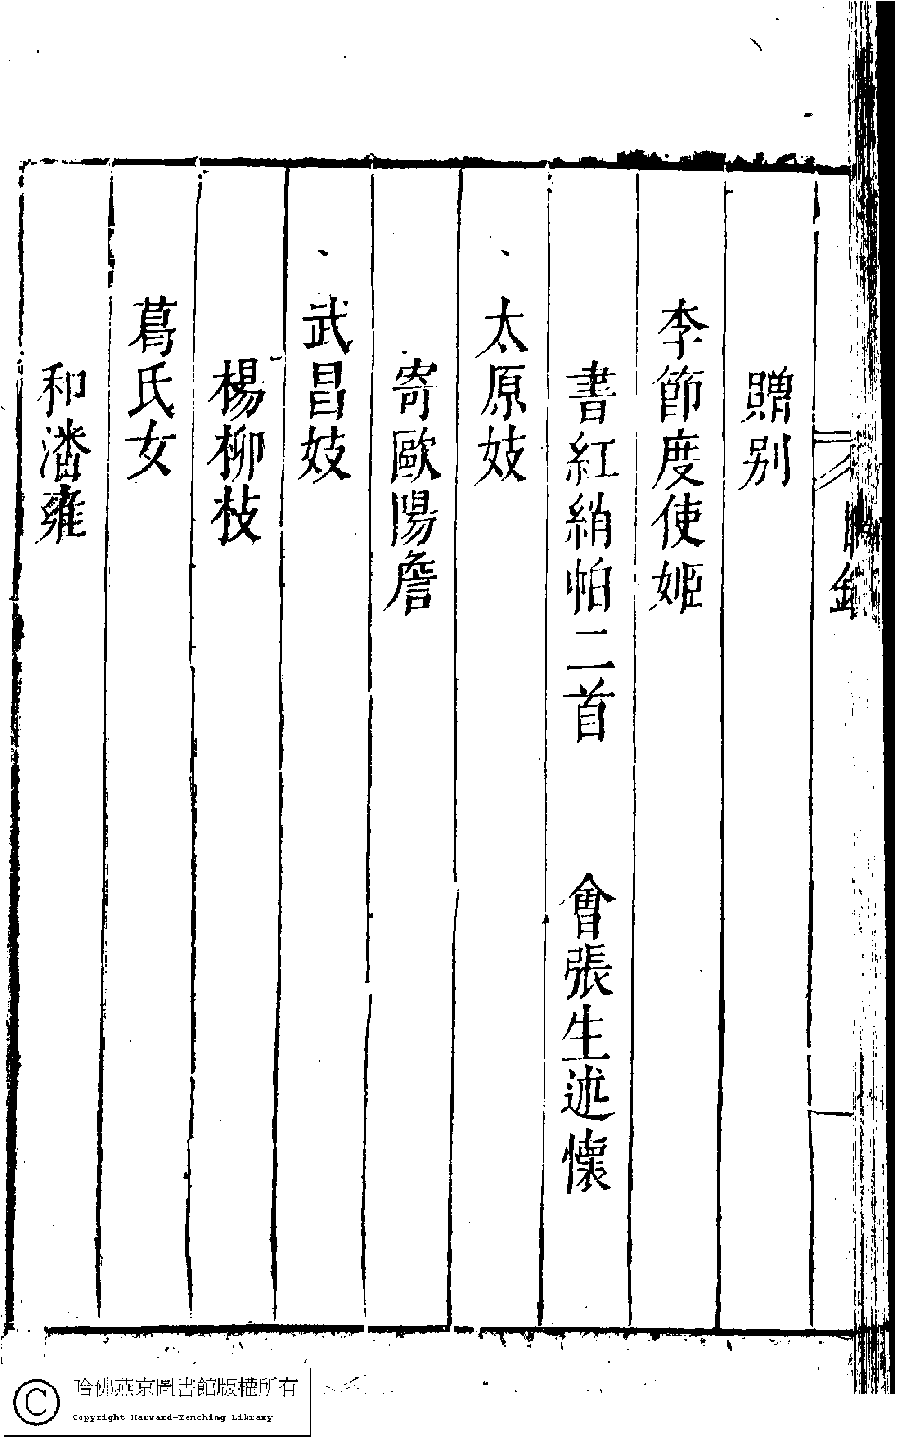 目錄
贈別
李節度使姬
書紅綃帕二首　會張生述懷
太原妓
寄歐陽詹
武昌妓
楊柳枝
葛氏女
和潘雍
哈佛燕京圖書館版權所有
Copyright Harvard-Yenching Library